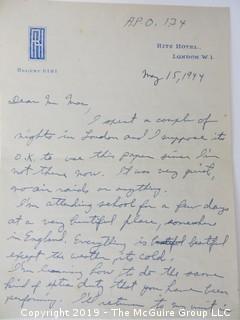 A.P.O. 134
RH
RITZ HOTEL,
LONDON W.1.
REGENT 8181
May 15, 1944
Dear Mr Mac,
I spent a couple of
nights in London and I suppose its
O.K. to use this paper since I'm
not there now. It was very quiet,
no air raids or anything.
I'm attending school for a few days
at a very beautiful place, somewhere
in England. Everything is beautiful
except the weather, its cold!
I'm learning how to do the same
kind of extra duty that you have been
performing. I'll return to my unit in
Copyright 2019 - The McGuire Group LLC